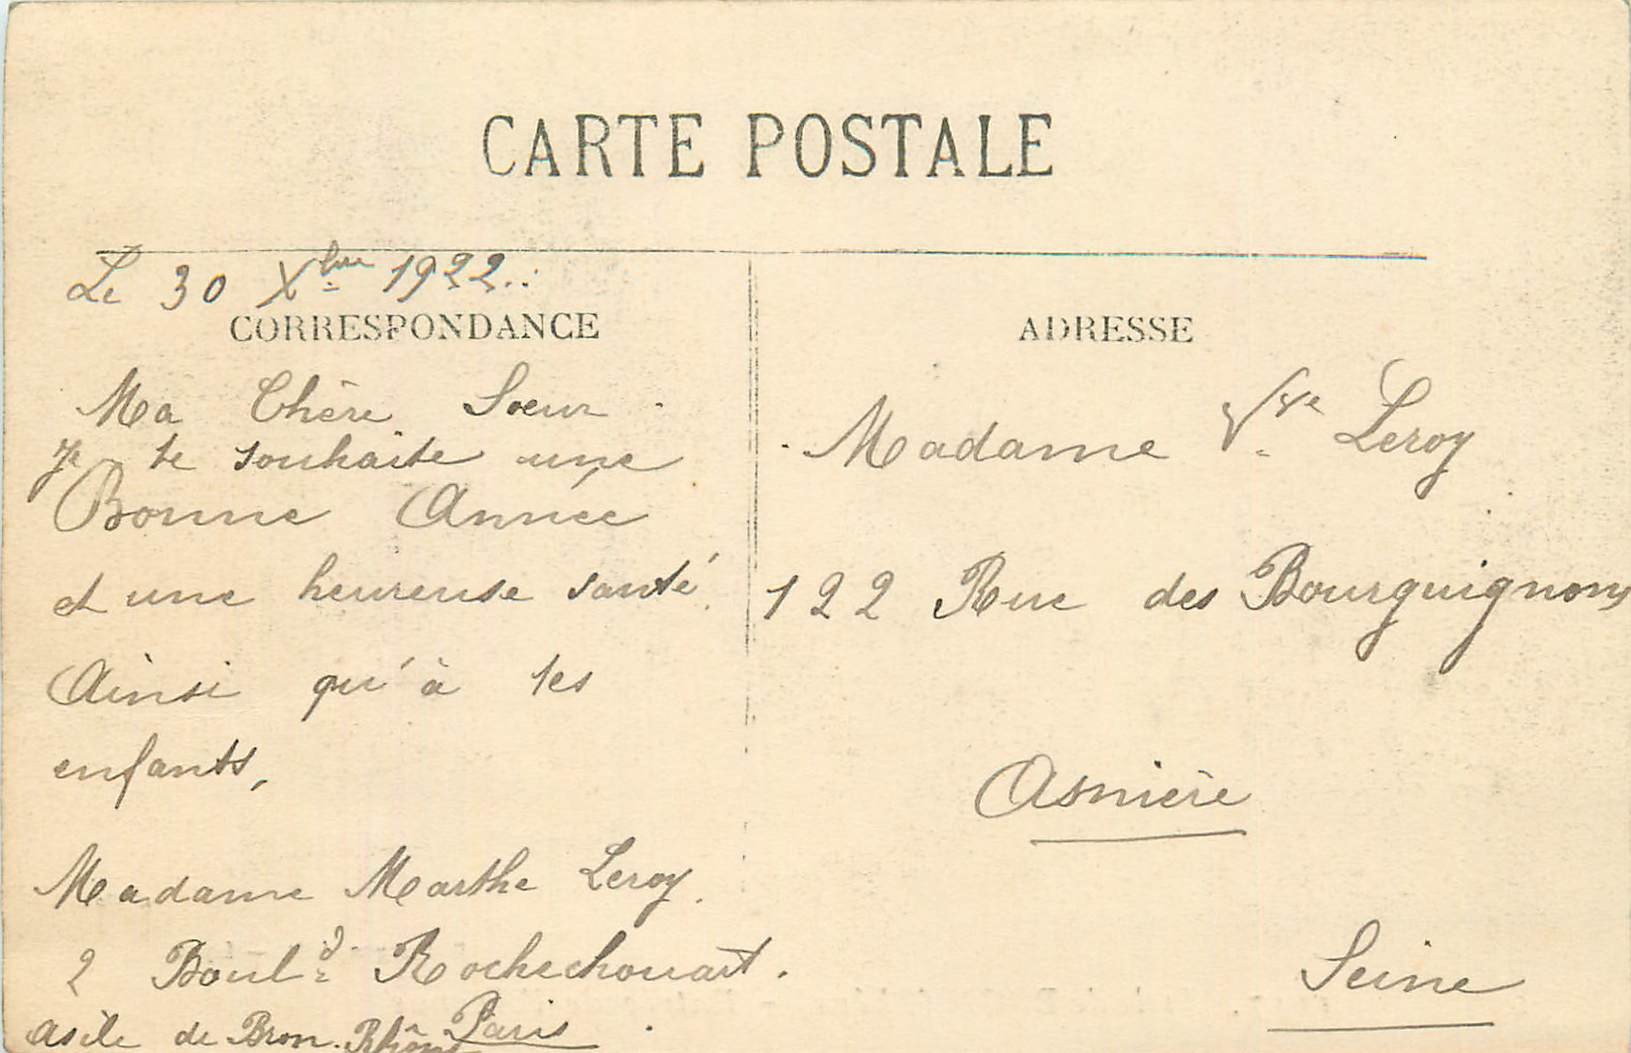 CARTE POSTALE
Le 30 Xbre 1922.
CORRESPONDANCE
Ma Chère Soeur
Je te souhaite une
Bonne Année
et une heureuse santé
Ainsi qu'à tes
enfants,
Madame Marthe Leroy.
2 Boul.d Rochechouart.
Paris
asile de Bron. Rhône
ADRESSE
Madame Vve Leroy
122 Rue des Bourguignons
Asnière
Seine